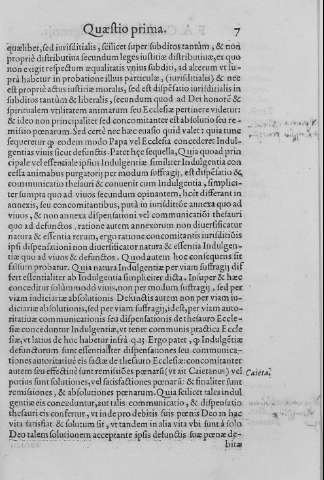 Quæstio prima. 7
quælibet, sed iurisditialis, scilicet super subditos tantùm, & non
propriè distributiua secundum leges iustitiæ distributiuæ, ex quo
non exigit respectum æqualitatis vnius subditi, ad alterum vt suprà
habetur in probatione illius particulæ, (iurisditialis) & nec
est propriè actus iustitiæ moralis, sed est dispẽsatio iurisditialis in
subditos tantùm & liberalis, secundum quod ad Dei honorẽ &
spiritualem vtilitatem animarum seu Ecclesiæ pertinere videtur:
& ideo non principaliter sed concomitanter est absolutio seu remissio
pœnarum. Sed certè nec hæc euasio quid valet: quia tunc
sequeretur ꝙ eodem modo Papa vel Ecclesia concederet Indulgentias
viuis sicut defunctis. Patet hęc sequella, Quia quoad principale
vel essentiale ipsius Indulgentiæ similiter Indulgentia concessa
animabus purgatorij per modum suffragij, est dispẽsatio &
communicatio thesauri & conuenit cum Indulgentia, simpliciter
sumpta quo ad viuos secundum opinantem, licèt differant in
annexis, seu concomitantibus, putà in iurisditiõe annexa quo ad
viuos, & non annexa dispensationi vel communicatiõi thesauri
quo ad defunctos, ratione autem annexorum non diuersificatur
natura & essentia rerum, ergo ratione concomitantis iurisditiõis
ipsi dispensationi non diuersificatur natura & essentia Indulgentiæ
quo ad viuos & defunctos. Quod autem hoc consequens sit
falsum probatur. Quia natura Indulgentiæ per viam suffragij differt
essentialiter ab Indulgentia simpliciter dicta. Insuper & hæc
conceditur solùm modò viuis, non per modum suffragij, sed per
viam iudiciariæ absolutionis. Defunctis autem non per viam iudiciariæ
absolutionis, sed per viam suffragij, idest, per viam autoritatiuæ
communicationis seu dispensationis de thesauro Ecclesiæ
conceduntur Indulgentiæ, vt tenet communis practica Ecclesiæ,
vt latius de hoc habetur infrà q.23. Ergo patet, ꝙ Indulgẽtiæ
defunctorum sunt essentialiter dispensationes seu communicationes
autoritatiuæ eis factæ de thesauro Ecclesiæ: concomitanter
autem seu effectiuè sunt remissiões pœnarũ (vt ait Caietanus) vel
potius sunt solutiones, vel satisfactiones pœnarũ: & finaliter sunt
remissiones, & absolutiones pœnarum. Quia scilicet tales indulgentiæ
eis conceduntur, aut talis communicatio, & dispensatio
thesauri eis confertur, vt inde pro debitis suis pœnis Deo in hac
vita satisfiat & solutum sit, vt tandem in alia vita vbi sunt à solo
Deo talem solutionem acceptante ipsis defunctis suæ pœnæ de-
bitæ
Caieta.